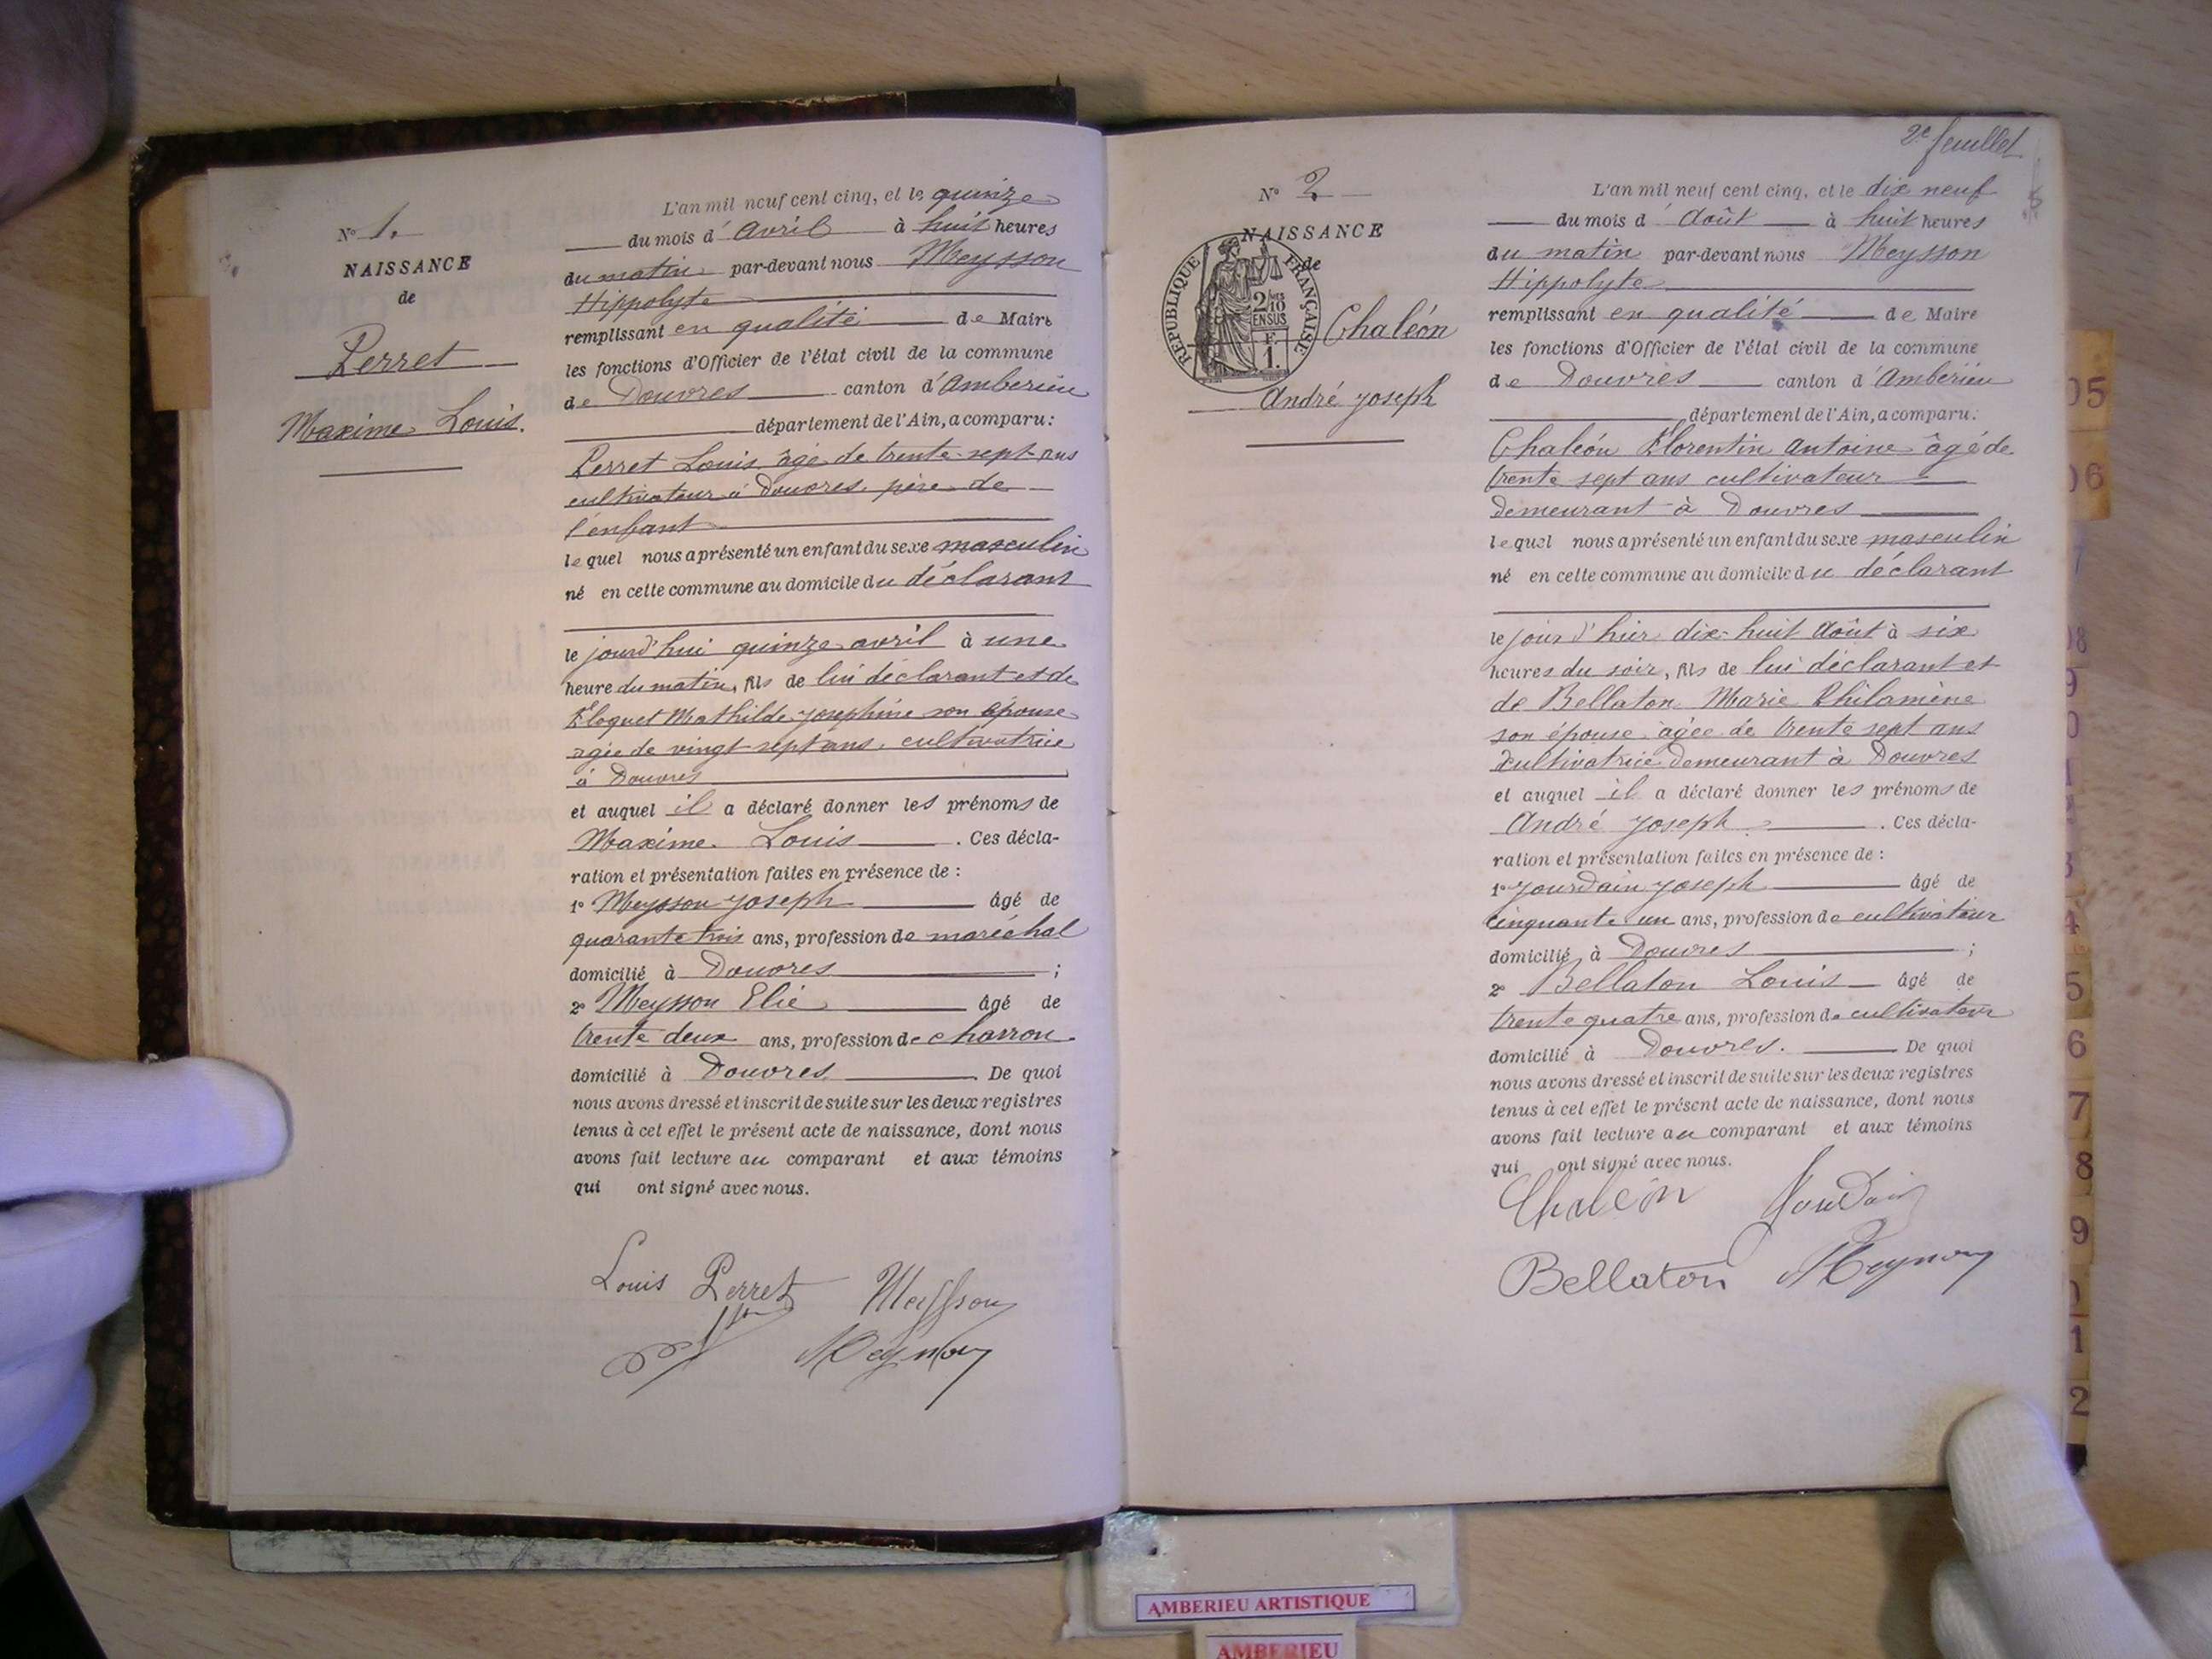 N° 1.
NAISSANCE
de
Perret
Maxime Louis.
L'an mil neuf cent cinq, et le quinze
du mois d'Avril à huit heures
du matin par-devant nous Meysson
Hippolyte
remplissant en qualité de Maire
les fonctions d'Officier de l'état civil de la commune
de Douvres canton d'Amberieu
département de l'Ain, a comparu:
Perret Louis âgé de trente-sept ans
cultivateur à Douvres père de
l'enfant
lequel nous a présenté un enfant du sexe masculin
né en cette commune au domicile du déclarant
le jourd'hui quinze avril à une
heure du matin, fils de lui déclarant et de
Floquet Mathilde Joséphine son épouse
agée de vingt-sept ans, cultivatrice
à Douvres
et auquel il a déclaré donner les prénoms de
Maxime Louis. Ces décla-
ration et présentation faites en présence de :
1° Meysson Joseph âgé de
quarante trois ans, profession de maréchal
domicilié à Douvres ;
2° Meysson Elie âgé de
trente deux ans, profession de charron
domicilié à Douvres. De quoi
nous avons dressé et inscrit de suite sur les deux registres
tenus à cet effet le présent acte de naissance, dont nous
avons fait lecture au comparant et aux témoins
qui ont signé avec nous.
Louis Perret Meysson
Meysson
2e feuillet
N° 2
NAISSANCE
de
REPUBLIQUE FRANÇAISE
2/10
EN SUS
F.
1.
Chaléon
André Joseph
L'an mil neuf cent cinq, et le dix neuf
du mois d'Août à huit heures
du matin par-devant nous Meysson
Hippolyte
remplissant en qualité de Maire
les fonctions d'Officier de l'état civil de la commune
de Douvres canton d'Ambérieu
département de l'Ain, a comparu:
Chaléon Florentin Antoine âgé de
trente sept ans cultivateur
demeurant à Douvres
lequel nous a présenté un enfant du sexe masculin
né en cette commune au domicile du déclarant
le jour d'hier dix-huit Août à six
heures du soir, fils de lui déclarant et
de Bellaton Marie Philomène
son épouse âgée de trente sept ans
cultivatrice demeurant à Douvres
et auquel il a déclaré donner les prénoms de
André Joseph. Ces décla-
ration et présentation faites en présence de :
1° Jourdain Joseph âgé de
cinquante un ans, profession de cultivateur
domicilié à Douvres ;
2° Bellaton Louis âgé de
trente quatre ans, profession de cultivateur
domicilié à Douvres. De quoi
nous avons dressé et inscrit de suite sur les deux registres
tenus à cet effet le présent acte de naissance, dont nous
avons fait lecture au comparant et aux témoins
qui ont signé avec nous.
Chaleon Jourdain
Bellaton Meysson
05
06
7
08
9
0
1
3
4
5
6
7
8
9
1
2
AMBERIEU ARTISTIQUE
AMBERIEU